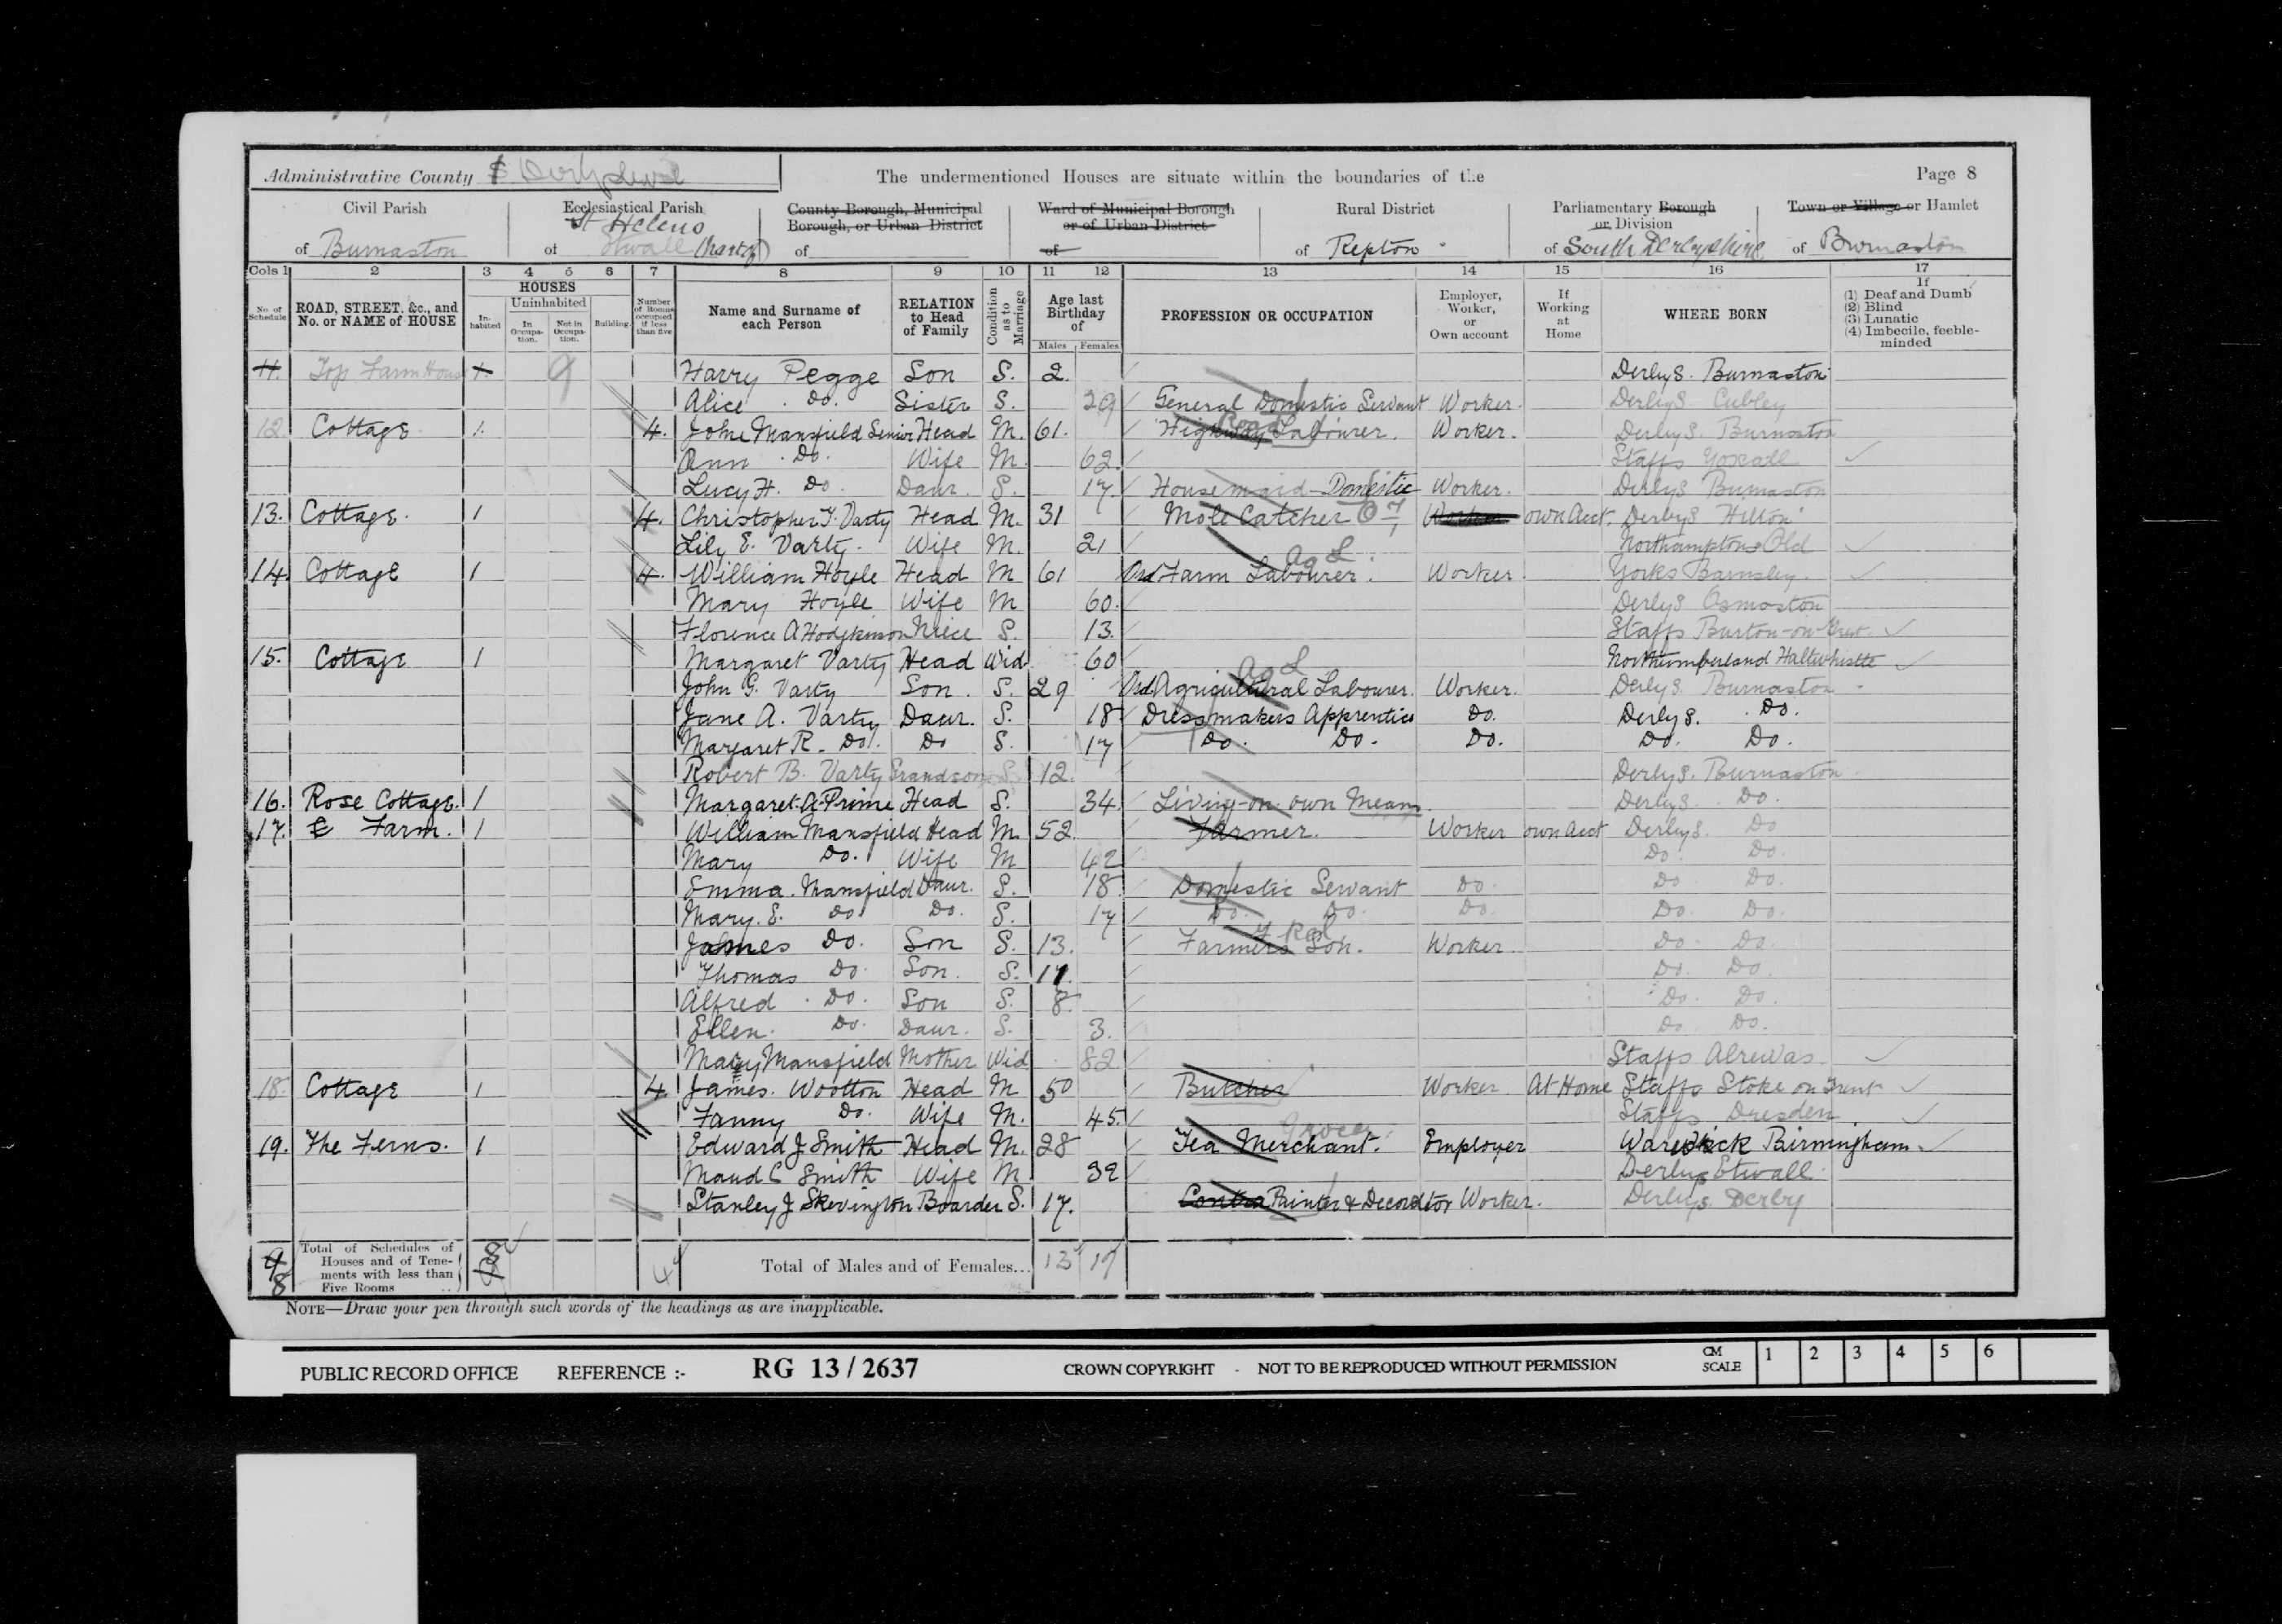 Administrative County Derbyshire
The undermentioned Houses are situate within the boundaries of the
Page 8
Civil Parish
of Burnaston
Ecclesiastical Parish
St Helens
of Etwall (Part of)
County Borough, Municipal
Borough, or Urban District
of
Ward of Municipal Borough
or of Urban District
of
Rural District
of Repton
Parliamentary Borough
or Division
of South Derbyshire
Town or Village or Hamlet
of Burnaston
Cols 1 2 3 4 5 6 7 8 9 10 11 12 13 14 15 16 17
No. of Schedule
ROAD, STREET, &c., and No. or NAME of HOUSE
HOUSES
In-habited
Uninhabited
In Occupa-tion.
Not in Occupa-tion.
Building
Number of Rooms occupied if less than five
Name and Surname of each Person
RELATION to Head of Family
Condition as to Marriage
Age last Birthday of
Males Females
PROFESSION OR OCCUPATION
Employer, Worker, or Own account
If Working at Home
WHERE BORN
If
(1) Deaf and Dumb
(2) Blind
(3) Lunatic
(4) Imbecile, feeble-minded
11. Top Farm House 1. 9 Harry Pegge Son S. 2. Derbys. Burnaston
Alice Do. Sister S. 29 General Domestic Servant Worker. Derbys. Cubley
12. Cottage 1. 4. John Mansfield Senior Head M. 61. Highway Labourer. Worker. Derbys. Burnaston
Ann Do. Wife M. 62. Staffs Yoxall
Lucy H. Do. Daur. S. 17. Housemaid - Domestic Worker. Derbys Burnaston
13. Cottage. 1 4. Christopher T. Varty Head M. 31 Mole Catcher Worker own Acct. Derbys Hilton
Lily E. Varty. Wife M. 21 Northamptons Old
Ag L
14. Cottage 1 4. William Hoyle Head M 61 Ord Farm Labourer. Worker. Yorks Barnsley.
Mary Hoyle Wife M 60. Derbys Osmaston
Florence A Hodgkinson Niece S. 13. Staffs Burton-on-Trent.
15. Cottage 1 Margaret Varty Head Wid. 60 Northumberland Haltwhistle
Ag L
John G. Varty Son. S. 29 Ord. Agricultural Labourer. Worker. Derbys. Burnaston
Jane A. Varty Daur. S. 18 Dressmakers Apprentice Do. Derbys. Do.
Margaret R. Do. Do S. 17 Do. Do. Do. Do. Do.
Robert B. Varty Grandson S. 12. Derbys. Burnaston
16. Rose Cottage. 1 Margaret A. Prime Head S. 34 Living on own Means. Derbys. Do.
17. Farm. 1 William Mansfield Head M. 52. Farmer. Worker own Acct Derbys. Do
Mary Do. Wife M 42 Do. Do.
Emma. Mansfield Daur. S. 18. Domestic Servant Do. Do Do.
Mary. E. Do. Do. S. 17 Do. Do. Do. Do. Do.
James Do. Son S. 13. Farmers Son. Worker Do. Do.
Thomas Do. Son. S. 11. Do. Do.
Alfred Do. Son S. 8. Do. Do.
Ellen. Do. Daur. S. 3. Do Do.
Mary Mansfield Mother Wid 82 Staffs Alrewas
18. Cottage 1 4. James. Wootton Head M 50 Butcher Worker At Home Staffs Stoke on Trent
Fanny Do. Wife M. 45. Staffs Dresden
Grocer
19. The Ferns. 1 Edward J Smith Head M. 28 Tea Merchant. Employer Warwick Birmingham
Maud C Smith Wife M 32 Derbys Etwall
Stanley J Skevington Boarder S. 17. Painter & Decorator Worker. Derbys. Derby
8 Total of Schedules of Houses and of Tene-ments with less than Five Rooms 8 4 Total of Males and of Females... 13 19
NOTE—Draw your pen through such words of the headings as are inapplicable.
PUBLIC RECORD OFFICE REFERENCE :- RG 13 / 2637 CROWN COPYRIGHT - NOT TO BE REPRODUCED WITHOUT PERMISSION CM SCALE 1 2 3 4 5 6